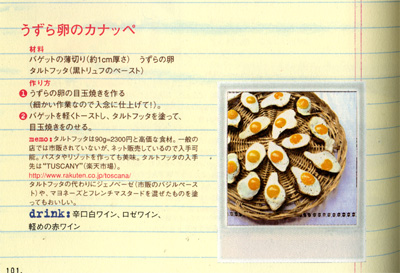 うずら卵のカナッペ
材料
バゲットの薄切り(約1cm厚さ) うずらの卵
タルトフッタ(黒トリュフのペースト)
作り方
1 うずらの卵の目玉焼きを作る
(細かい作業なので入念に仕上げて!)。
2 バゲットを軽くトーストし、タルトフッタを塗って、
目玉焼きをのせる。
memo:タルトフッタは90g=2300円と高価な食材。一般の
店では市販されていないが、ネット販売しているので入手可
能。パスタやリゾットを作っても美味。タルトフッタの入手
先は“TUSCANY”(楽天市場)。
http://www.rakuten.co.jp/toscana/
タルトフッタの代わりにジェノベーゼ(市販のバジルペース
ト)や、マヨネーズとフレンチマスタードを混ぜたものを塗
ってもおいしい。
drink:辛口白ワイン、ロゼワイン、
軽めの赤ワイン
101.